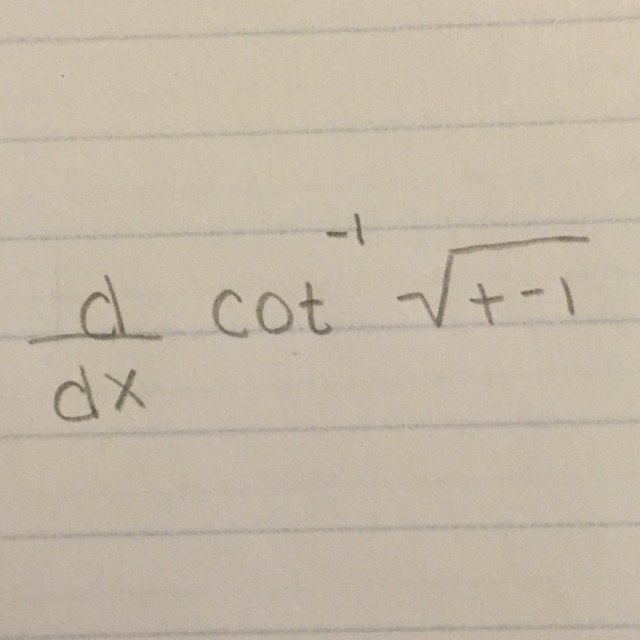 d/dx cot⁻¹ √(t-1)